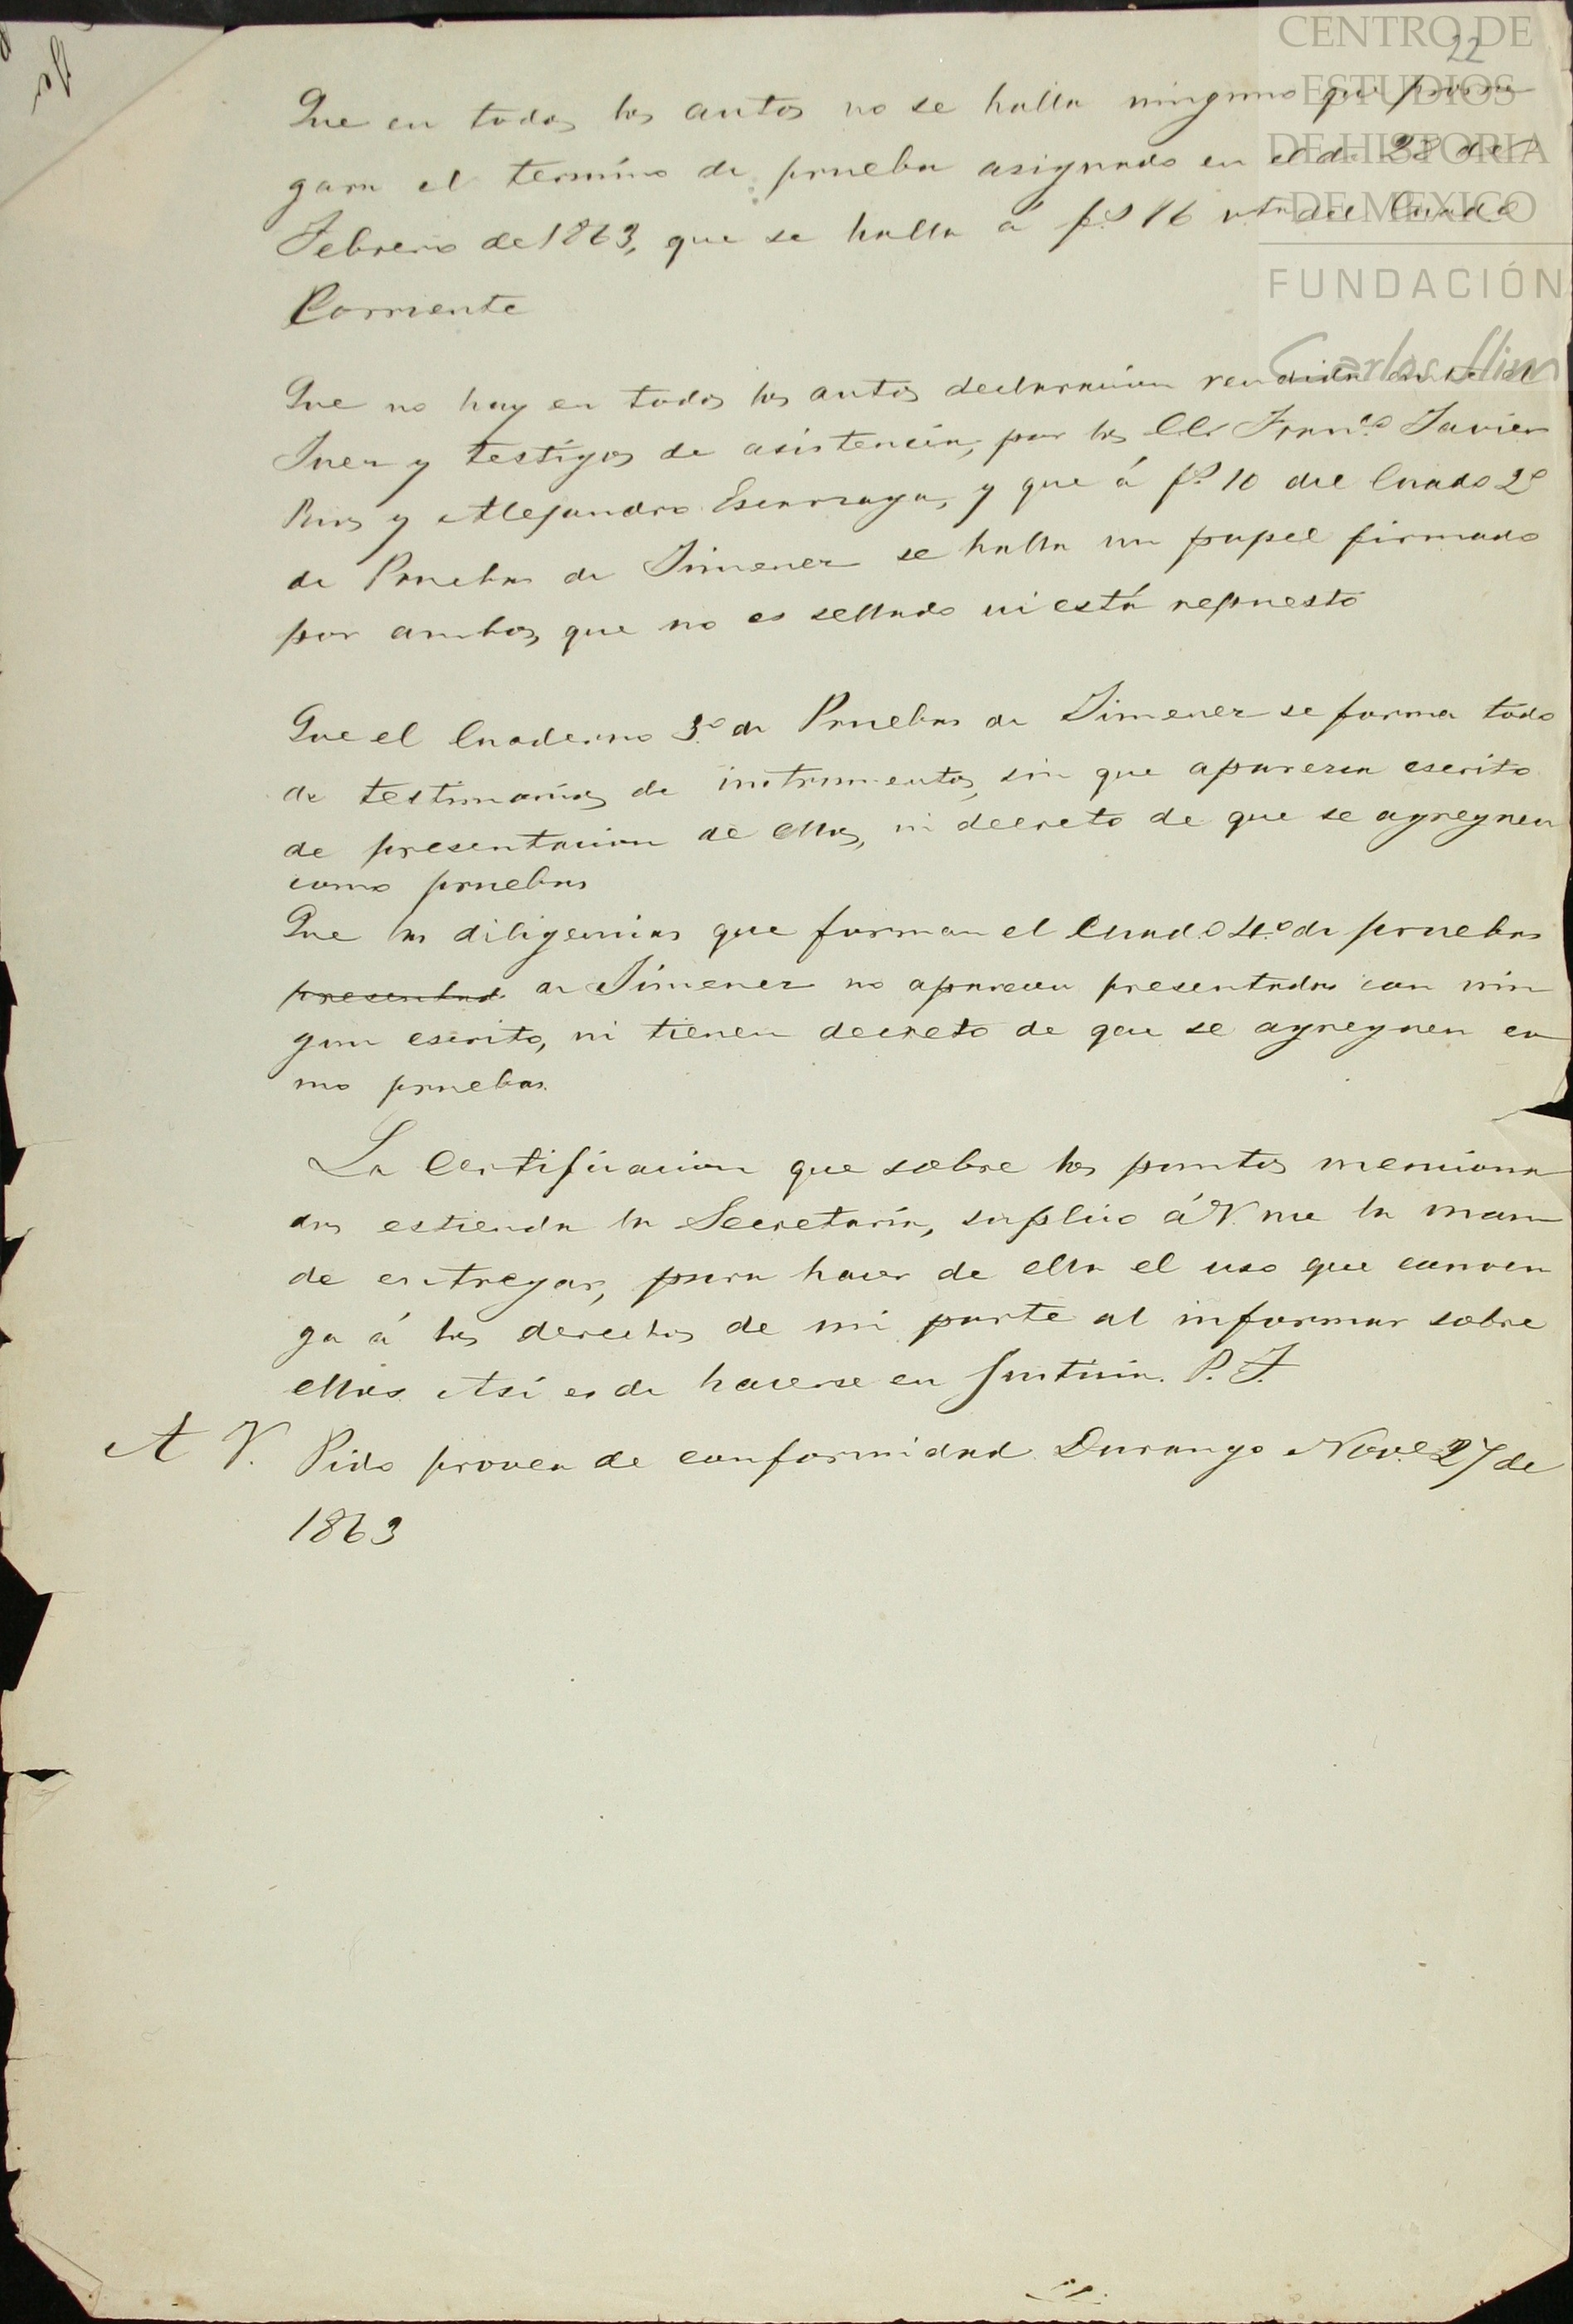 CENTRO DE
ESTUDIOS
DE HISTORIA
DE MEXICO
FUNDACIÓN
Carlos Slim
22
Que en todos los autos no se halla ninguno que prorro
gara el termino de prueba asignado en el de 28 de
Febrero de 1863, que se halla á f.s 16 vta del Cuad.o
Corriente
Que no hay en todos los autos declaracion rendida ante el
Juez y testigos de asistencia, por los CC. Fran.co Javier
Rios y Alejandro Escarzaga, y que á f.s 10 del Cuado 2º
de Pruebas de Jimenez se halla un papel firmado
por ambos, que no es sellado ni está repuesto
Que el Cuaderno 3.º de Pruebas de Jimenez se forma todo
de testimonios de instrumentos, sin que aparezca escrito
de presentacion de ellos, ni decreto de que se agreguen
como pruebas
Que las diligencias que forman el Cuad.o 4.º de pruebas
presentad de Jimenez no aparecen presentadas con nin
gun escrito, ni tienen decreto de que se agreguen co
mo pruebas.
La Certificacion que sobre los puntos menciona
dos estienda la Secretaría, suplico á V. me la man
de entregar, para hacer de ella el uso que conven
ga á los derechos de mi parte al informar sobre
ellos. Así es de hacerse en Justicia. P. J.
A V. Pido provea de conformidad. Durango Nov.e 27 de
1863